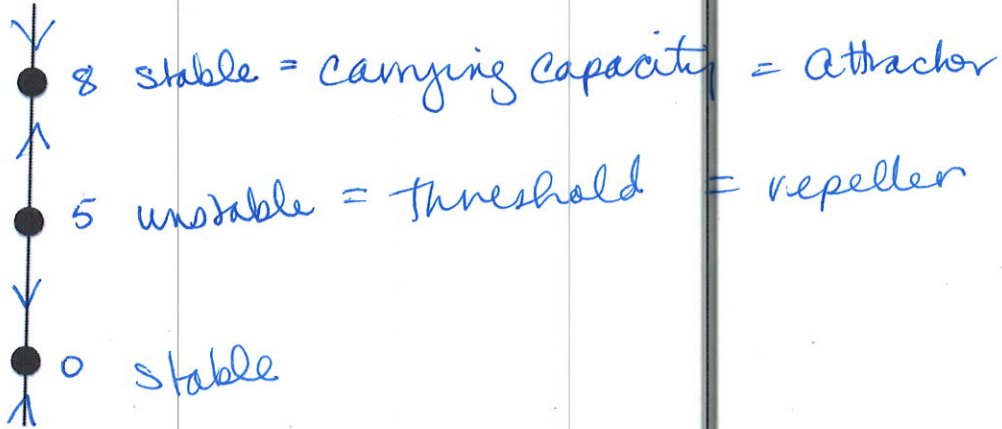 8 stable = carrying capacity = attractor
5 unstable = threshold = repeller
0 stable